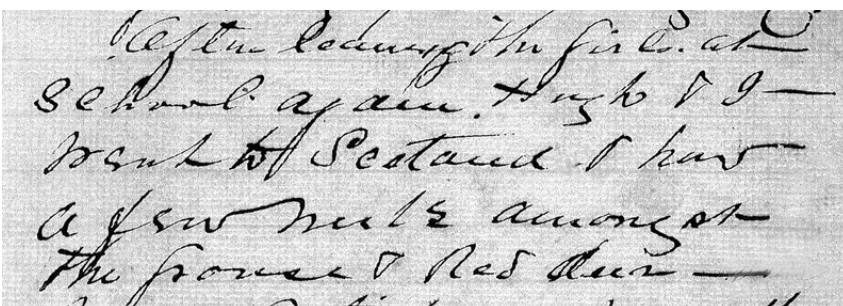 After leaving the girls. at
school again. Hugh & I —
went to Scotland & have
a few weeks amongst
the grouse & Red deer —